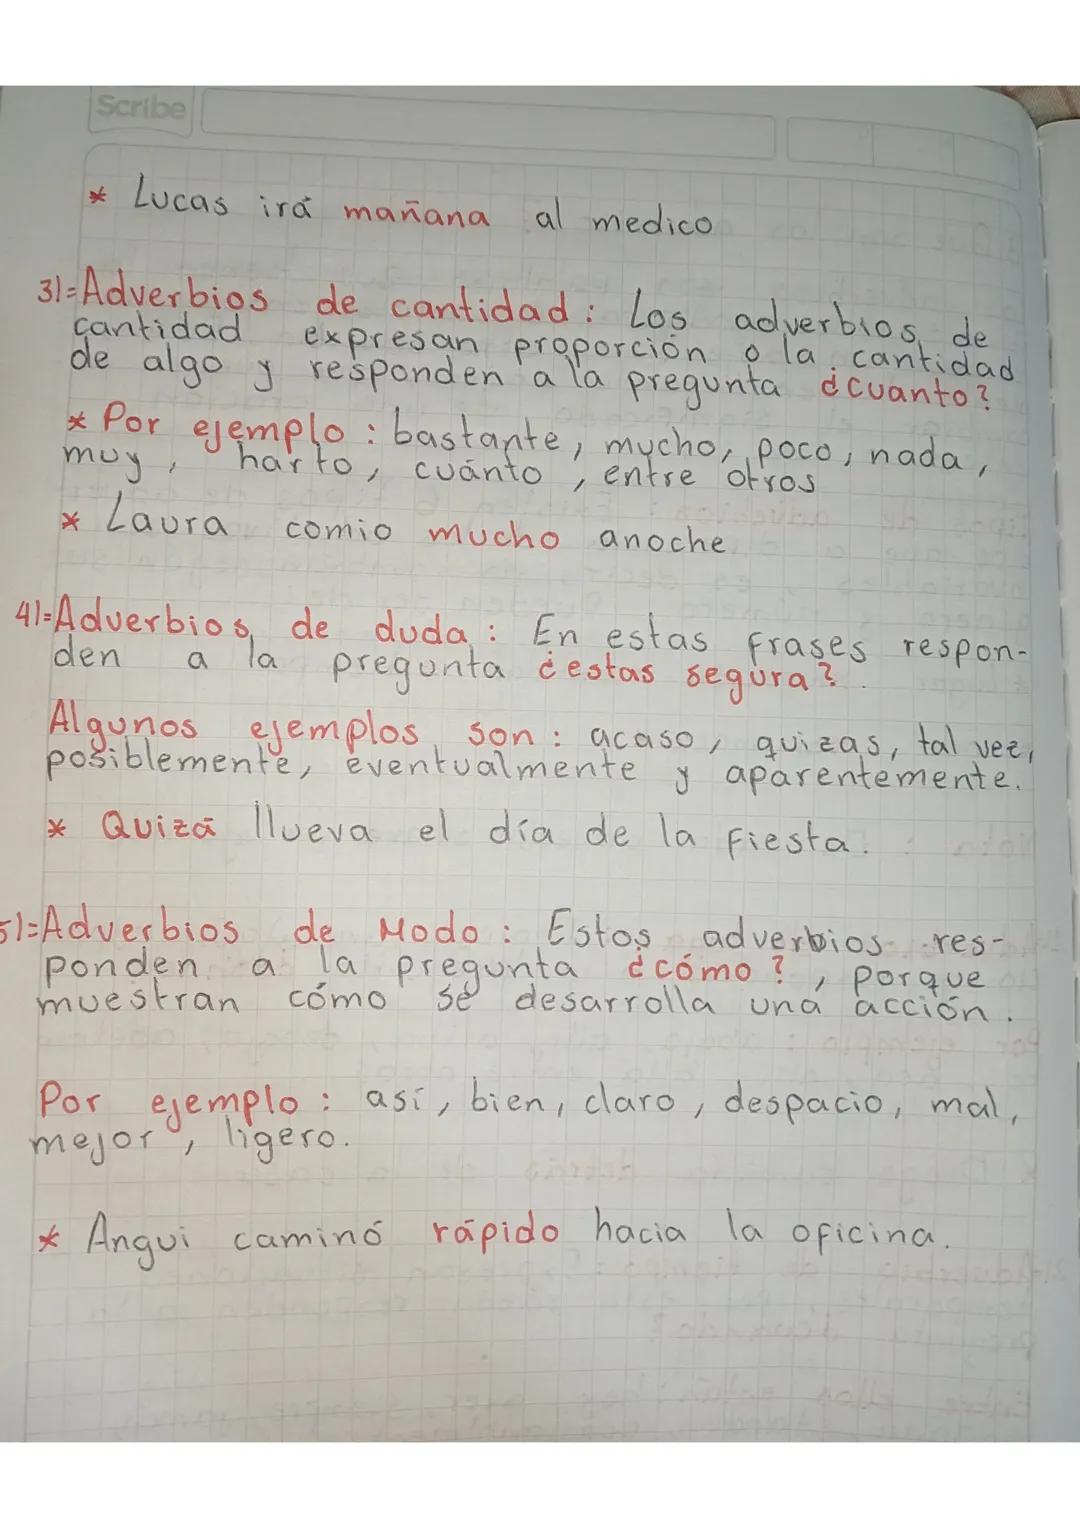 Scribe
* Lucas irá mañana al medico
3)=Adverbios de cantidad: Los adverbios de
cantidad expresan proporción o la cantidad
de algo y responden a la pregunta ¿cuanto?
* Por ejemplo: bastante, mucho, poco, nada,
muy, harto, cuánto, entre otros
* Laura comio mucho anoche
4)=Adverbios de duda: En estas frases respon-
den a la pregunta ¿estas segura?
Algunos ejemplos son: acaso, quizas, tal vez,
posiblemente, eventualmente y aparentemente.
* Quizá llueva el día de la fiesta.
5)=Adverbios de Modo: Estos adverbios res-
ponden a la pregunta ¿cómo?, porque
muestran cómo se desarrolla una acción.
Por ejemplo: así, bien, claro, despacio, mal,
mejor, ligero.
* Angui caminó rápido hacia la oficina.